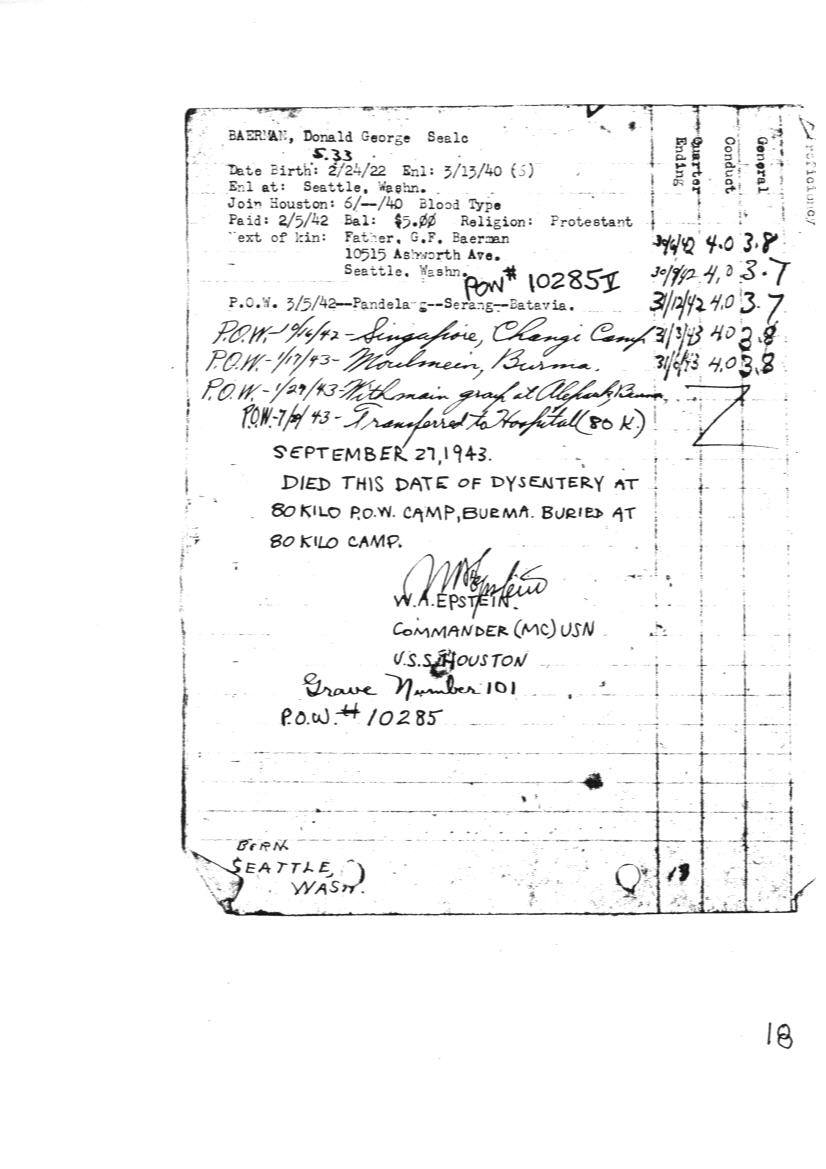 BAERMAN, Donald George Sea1c
S.33
Date Birth: 2/24/22 Enl: 3/13/40 (6)
Enl at: Seattle, Washn.
Join Houston: 6/--/40 Blood Type
Paid: 2/5/42 Bal: $5.00 Religion: Protestant
Next of kin: Father, G.F. Baerman
10515 Ashworth Ave.
Seattle, Washn.
POW # 10285 V
P.O.W. 3/5/42--Pandelang--Serang--Batavia.
P.O.W.-10/16/42- Singapore, Changi Camp
P.O.W.-1/17/43- Moulmein, Burma.
P.O.W.-1/29/43-With main group at Burma.
P.O.W-7/ /43- Transferred to Hospital (80 K.)
SEPTEMBER 27, 1943.
DIED THIS DATE OF DYSENTERY AT
80 KILO P.O.W. CAMP, BURMA. BURIED AT
80 KILO CAMP.
W.A. Epstein
W.A. EPSTEIN.
COMMANDER (MC) USN
U.S.S. HOUSTON
Grave Number 101
P.O.W. # 10285
BORN
SEATTLE,
WASH.
Quarter Ending
Conduct
General
Proficiency
30/6/42 4.0 3.8
30/9/42 4.0 3.7
31/12/42 4.0 3.7
31/3/43 4.0 3.8
31/6/43 4.0 3.8
13
18